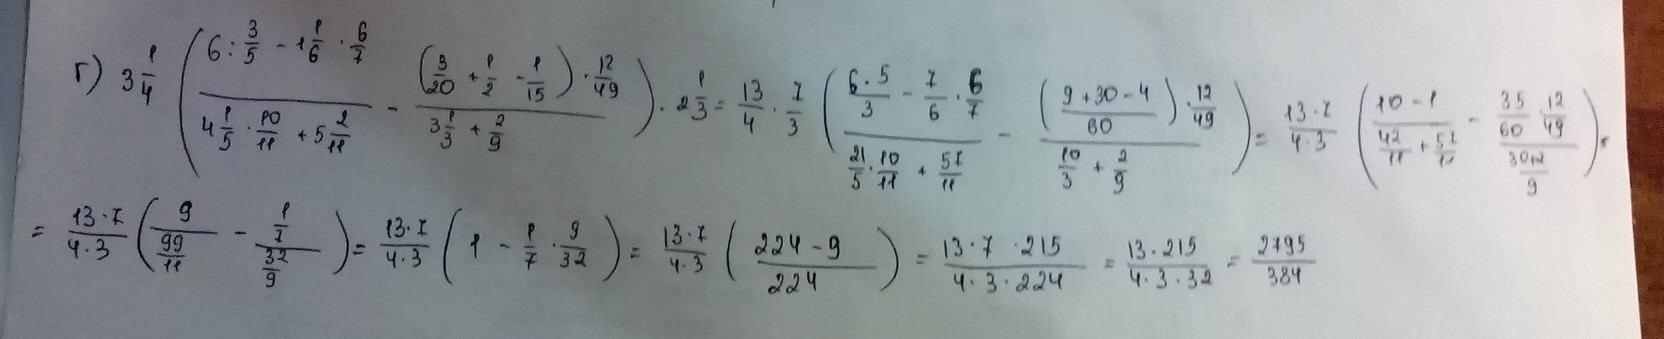 г) 3 1/4 ( (6 : 3/5 - 1 1/6 · 6/7) / (4 1/5 · 10/11 + 5 2/11) - ((3/20 + 1/2 - 1/15) · 12/49) / (3 1/3 + 2/9) ) · 2 1/3 = 13/4 · 7/3 ( (6·5/3 - 7/6 · 6/7) / (21/5 · 10/11 + 57/11) - (((9+30-4)/60) · 12/49) / (10/3 + 2/9) ) = 13·7/4·3 ( (10-1) / (42/11 + 57/11) - (35/60 · 12/49) / ((30+2)/9) ) =
= 13·7/4·3 ( 9 / (99/11) - (1/7) / (32/9) ) = 13·7/4·3 ( 1 - 1/7 · 9/32 ) = 13·7/4·3 ( (224-9)/224 ) = 13·7·215/4·3·224 = 13·215/4·3·32 = 2795/384